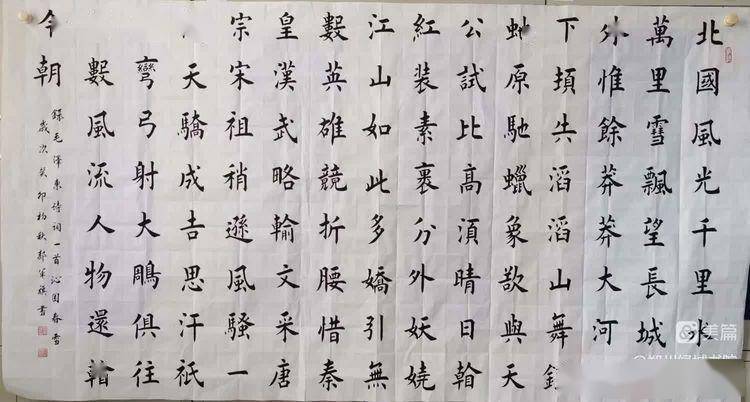 北國風光千里氷
萬里雪飄望長城
外惟餘莽莽大河
下頓失滔滔山舞
虵原馳蠟象欲與天
公試比高須晴日看
紅裝素裹分外妖嬈
江山如此多嬌引無
數英雄競折腰惜秦
皇漢武略輸文采唐
宗宋祖稍遜風騷一
天驕成吉思汗祇
彎弓射大鵰俱往
數風流人物還看
今朝
錄毛澤東詩詞一首沁園春雪
歲次癸卯初秋
書
美篇